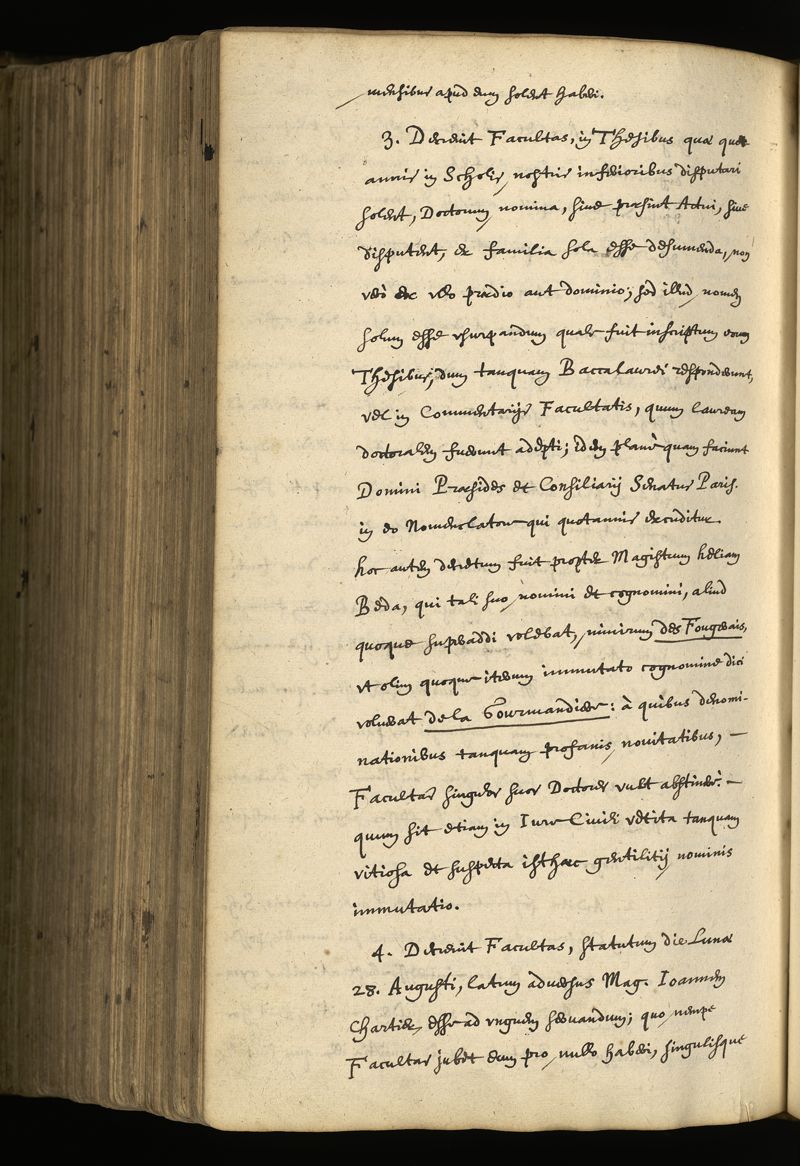 mensibus apud eum solent haberi.
3. Decrevit Facultas, in Thesibus quæ quot
annis in Scholis nostris inferioribus disputari
solent, Doctorum nomina, sive præsint Actui, sive
disputent, ex familia sola esse desumenda, non
verò ex ullo prædio aut dominio; sed illud nomen
solum esse usurpandum quale fuit inscriptum eorum
Thesibus, dum tanquam Baccalaurei responderunt,
vel in Commentarijs Facultatis, quum lauream
doctoralem fuerunt adepti; idem planè quam faciunt
Domini Præsides et Consiliarij Senatus Paris.
in eo Nomenclatore qui quotannis excuditur.
hoc autem decretum fuit propter Magistrum heliam
Beda, qui tali suo nomini et cognomini, aliud
quoque superaddi volebat, nimirum des Fougerais,
ut olim quoque iterum immutato cognomine dici
voluerat de la Gourmandiere: à quibus denomi-
nationibus tanquam profanis novitatibus, —
Facultas singulos suos Doctores vult abstinere. —
quum sit etiam in Iure Civili vetita tanquam
vitiosa et suspecta isthæc gentilitij nominis
immutatio.
4. Decrevit Facultas, statutum die Lunæ
28. Augusti, latum adversus Mag. Ioannem
Chartier, esse ad unguem servandum; quo nempe
Facultas jubet eum pro nullo haberi, singulisque